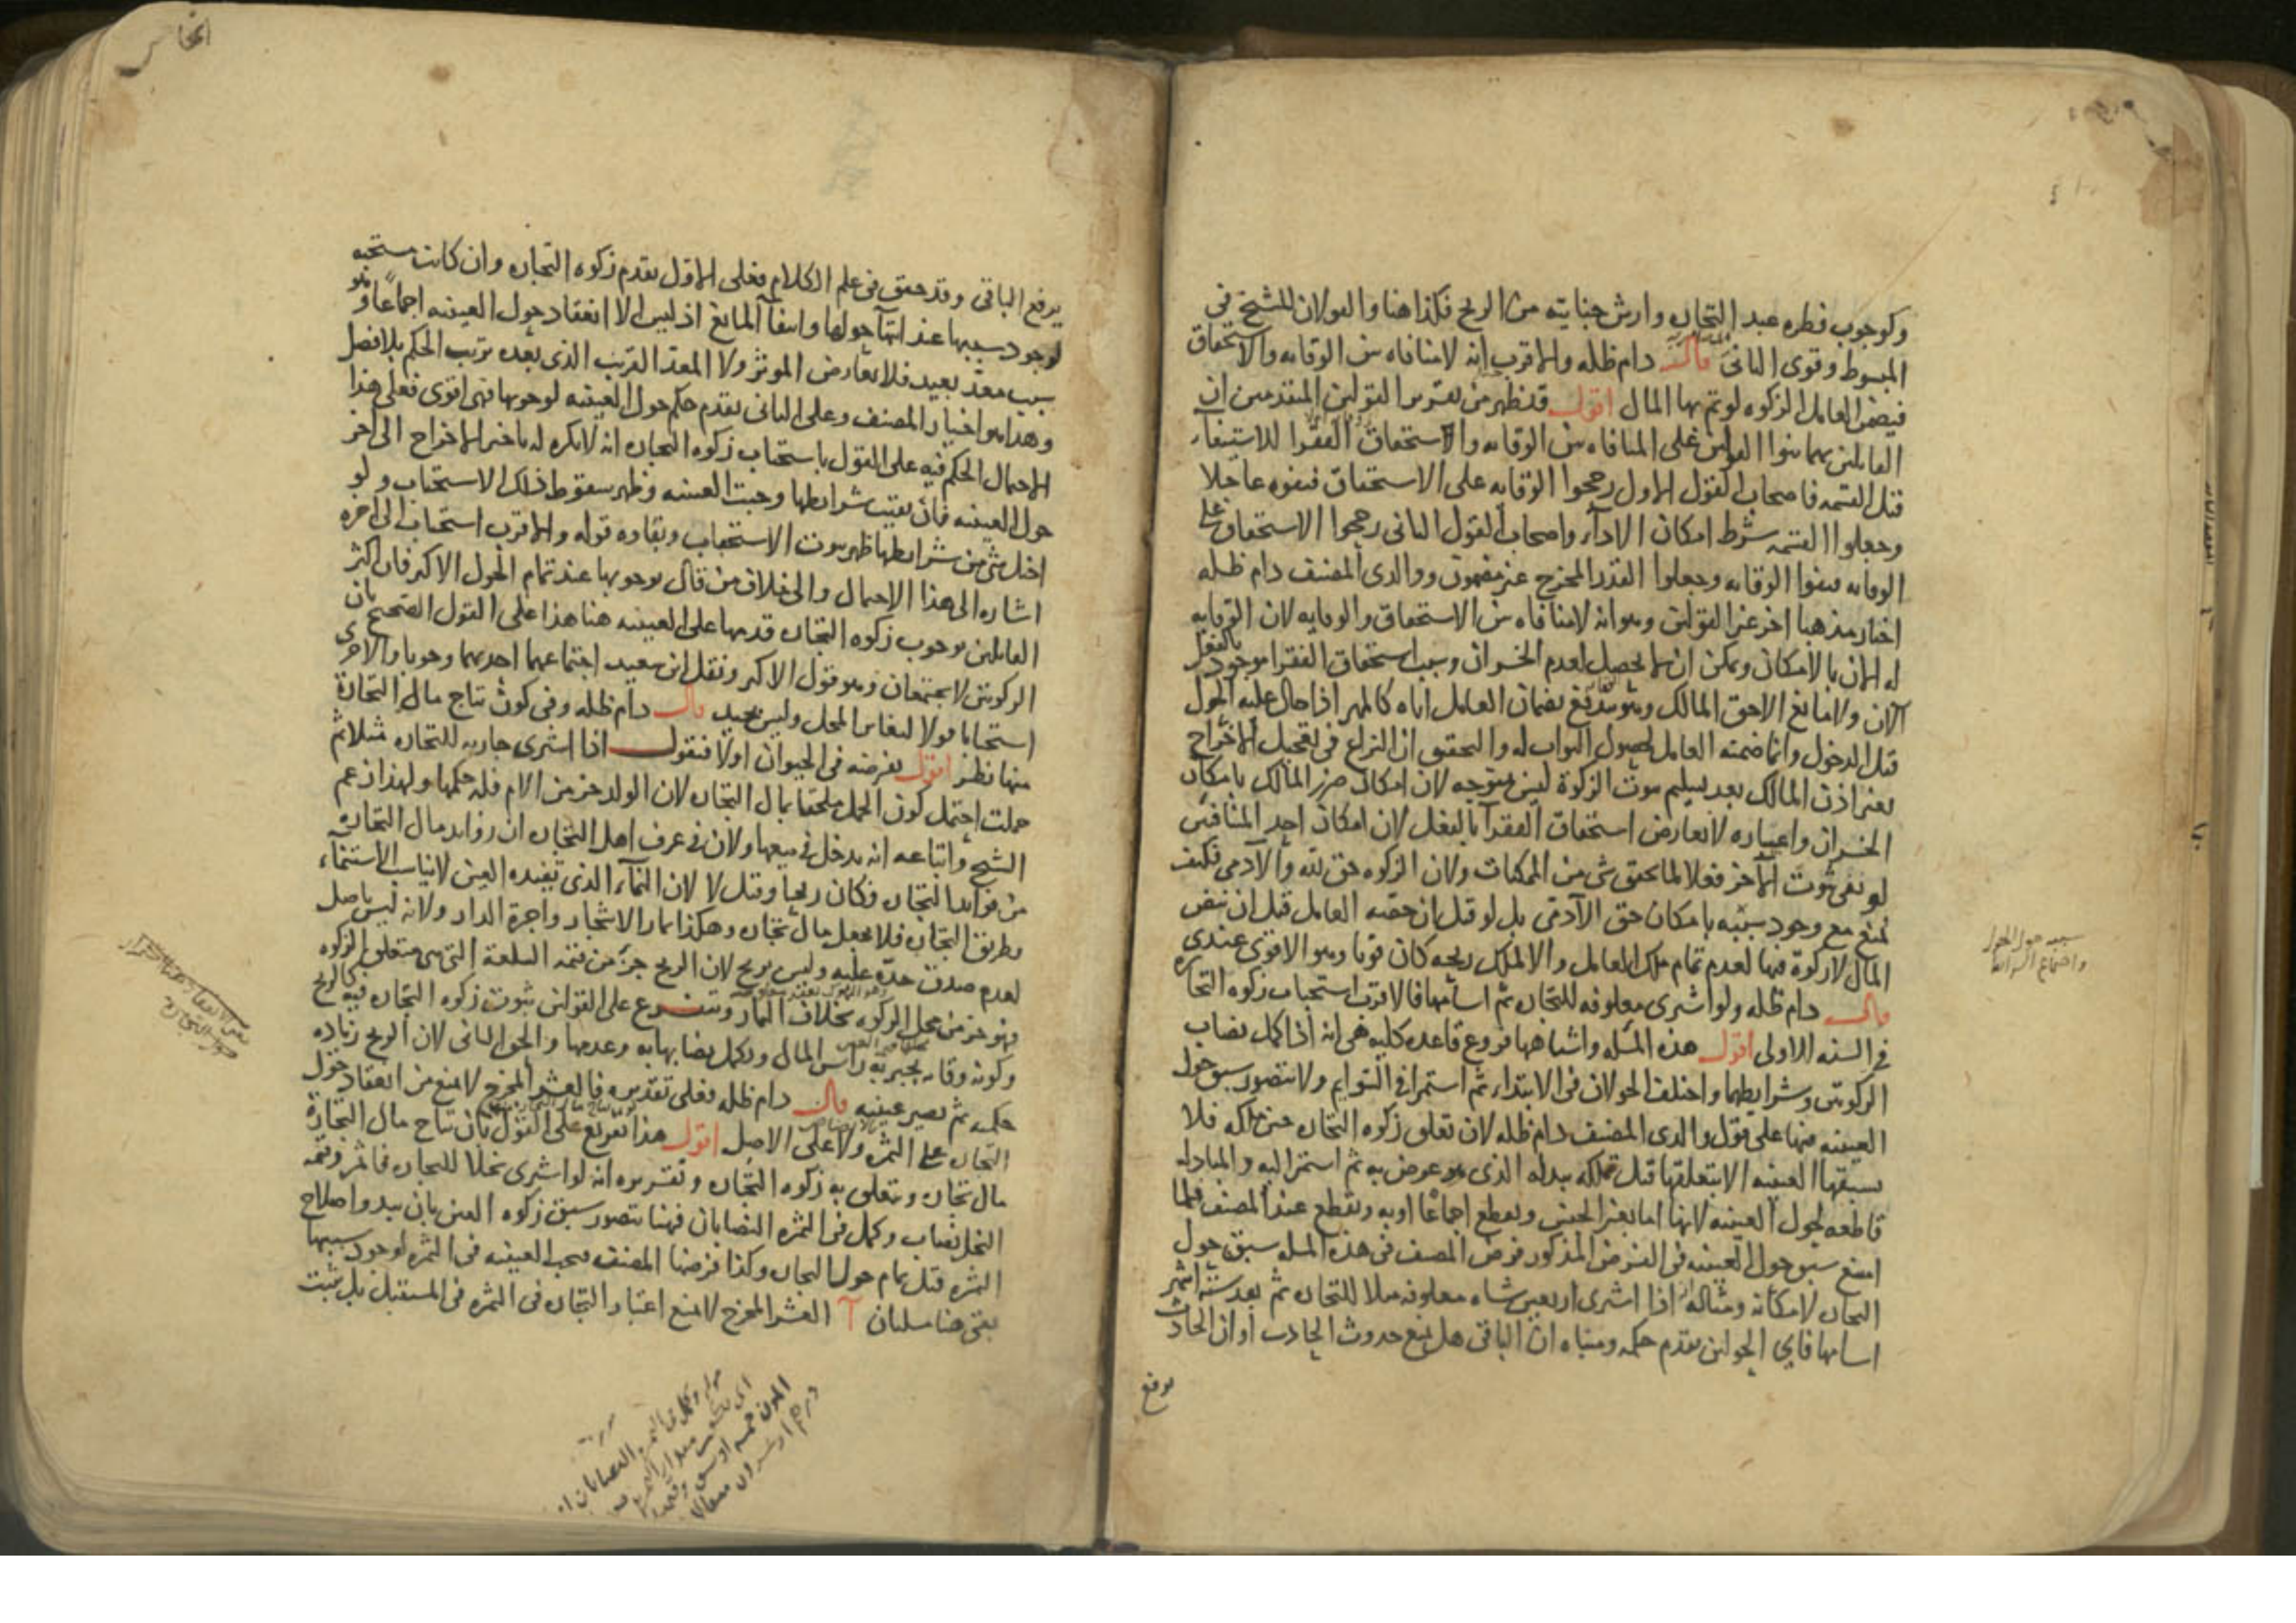 وكوجوب فطره عبد التجاره وارش جنايته من الربح فكذا هنا والقولان للشيخ في
المبسوط وقوى الثانى قال دام ظله والاقرب انه لا منافاه بين الوقايه والاستحقاق
فيضمن العامل الزكوه لو تم بها المال اقول قد ظهر من تقرير القولين المتقدمين ان
القائلين بهما بنوا القولين على المنافاه بين الوقايه والاستحقاق الفقرا للاستيفاء
قبل القسمه فاصحاب القول الاول رجحوا الوقايه على الاستحقاق فنفوه عاجلا
وجعلوا القسمه شرط امكان الاداء واصحاب القول الثانى رجحوا الاستحقاق على
الوقايه فنفوا الوقايه وجعلوا القدر المخرج غير مضمون ووالدى المصنف دام ظله
اختار مذهبا اخر غير القولين وهو انه لا منافاه بين الاستحقاق والوقايه لان الوقايه
له الان بالامكان ويمكن ان لا يحصل لعدم الخسران وسبب استحقاق الفقرا موجود بالفعل
الان ولا مانع الا حق المالك وهو يندفع بضمان العامل اياه كالمهر اذا حال عليه الحول
قبل الدخول وانما ضمنه العامل لحصول الثواب له والتحقيق ان النزاع فى تعجيل الاخراج
بغير اذن المالك بعد تسليم ثبوت الزكوة ليس بمتوجه لان امكان ضرر المالك بامكان
الخسران واعساره لا يعارض استحقاق الفقرآ بالفعل لان امكان احد المتنافيين
لو نفى ثبوت الآخر فعلا لما تحقق شى من الممكنات ولان الزكوه حق لله والآدمى فكيف
يمنع مع وجود سببه بامكان حق الآدمى بل لو قيل ان حصه العامل قبل ان ينض
المال لا زكوة فيها لعدم تمام ملك العامل والا لملك ربحه كان قويا وهو الاقوى عندى
قال دام ظله ولو اشترى معلوفه للتجاره ثم اسامها فالاقرب استحباب زكوه التجاره
فى السنه الاولى اقول هذه المسله واشباهها فروع قاعده كليه هى انه اذا كمل نصاب
الزكوتين وشرايطهما واختلف الحولان فى الابتداء ثم استمرا فى التوايم ولا يتصور سبق حول
العينيه فيها على قول والدى المصنف دام ظله لان تعلق زكوه التجاره حين ملكه فلا
يسبقها العينيه الا بتعلقها قبل تملكه ببدله الذى هو عرض به ثم استمر اليه والمبادله
قاطعه لحول العينيه لانها اما بغير الجنس ويقطع اجماعا او به ويقطع عند المصنف فلما
امتنع سبق حول العينيه فى الفرض المذكور فرض المصنف فى هذه المسله سبق حول
التجاره لامكانه ومثاله اذا اشترى اربعين شاه معلوفه مثلا للتجاره ثم بعد سته اشهر
اسامها فاى الحولين يقدم حكمه ومبناه ان الباقى هل يمنع حدوث الحادث او ان الحادث
يرفع
يرفع الباقى وقد حقق فى علم الكلام فعلى الاول يقدم زكوه التجاره وان كانت مستحبه
لوجود سببها عند انتهآ حولها وانتفآ المانع اذ ليس الا انعقاد حول العينيه اجماعا وهو
سبب معد بعيد فلا يعارض الموثر ولا المعد القريب الذى بعده ترتب الحكم بلا فصل
وهذا هو اختيار المصنف وعلى الثانى يقدم حكم حول العينيه لوجوبها فهى اقوى فعلى هذا
الاحتمال الحكم فيه على القول باستحباب زكوه التجاره انه لا يكره له تاخير الاخراج الى اخر
حول العينيه فان بقيت شرايطها وجبت العينيه وظهر سقوط ذلك الاستحباب ولو
اختل شى من شرايطها ظهر ثبوت الاستحباب وبقاوه قوله والاقرب استحباب الى اخره
اشاره الى هذا الاحتمال والى خلاف من قال بوجوبها عند تمام الحول الاكبر فان اكثر
القائلين بوجوب زكوه التجاره قدمها على العينيه هنا هذا على القول الصحيح بان
الزكوتين لا يجتمعان وهو قول الاكثر ونقل ابن سعيد اجتماعهما احديهما وجوبا والاخرى
استحبابا قولا لتغاير المحل وليس بجيد قال دام ظله وفى كون نتاج مال التجارة
منها نظر اقول نفرضه فى الحيوان اولا فنقول اذا اشترى جاريه للتجاره مثلا ثم
حملت احتمل كون الحمل ملحقا بمال التجاره لان الولد جز من الام فله حكمها ولهذا زعم
الشيخ واتباعه انه يدخل فى بيعها ولان فى عرف اهل التجاره ان زوايد مال التجاره
من فوايد التجاره فكان ربحا وقيل لا لان النمآء الذى تفيده العين لا يناسب الاستنماء
بطريق التجاره فلا يجعل مال تجاره وهكذا ثمار الاشجار واجرة الدار ولانه ليس باصل
لعدم صدق حده عليه وليس بربح لان الربح جز من قيمه السلعة التى هى متعلق الزكوه
فهو جز من محل الزكوه بخلاف الثمار ويتفرع على القولين ثبوت زكوه التجاره فيه كالربح
وكونه وقايه يجبر به راس المال ويكمل نصابها به وعدمها والحق الثانى لان الربح زياده
حكميه ثم تصير عينيه قال دام ظله فعلى تقديره فالعشر المخرج لا يمنع من انعقاد حول
التجاره على الثمره ولا على الاصل اقول هذا تفريع على القول بان نتاج مال التجارة
مال تجاره ويتعلق به زكوه التجاره وتقريره انه لو اشترى نخلا للتجاره فاثمر وقيمه
النخل نصاب وكمل فى الثمره النصابان فهنا يتصور سبق زكوه العين بان يبدو اصلاح
الثمره قبل تمام حول التجاره وكذا فرضها المصنف فيجب العينيه فى الثمره لوجود سببها
بقى هنا مسلتان آ العشر المخرج لا يمنع اعتبار التجاره فى الثمره فى المستقبل بل يثبت